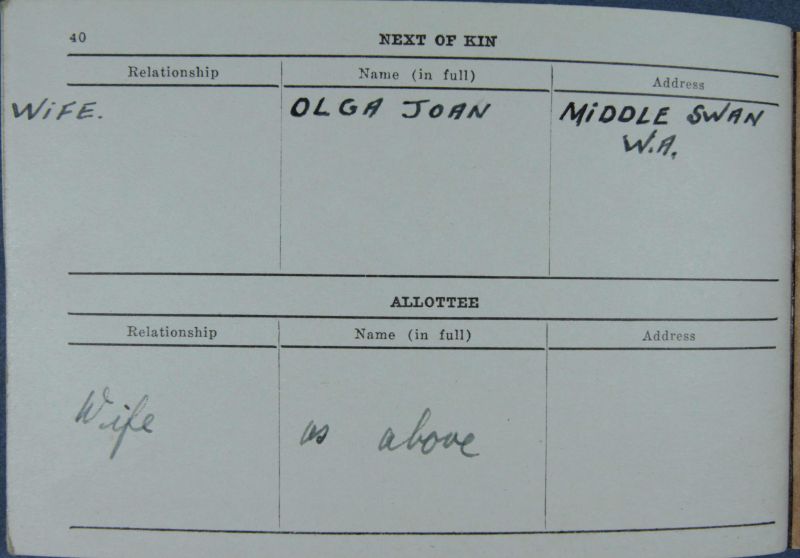 40
NEXT OF KIN
Relationship Name (in full) Address
WiFE. OLGA JOAN MiDDLE SWAN
W.A.
ALLOTTEE
Relationship Name (in full) Address
Wife as above